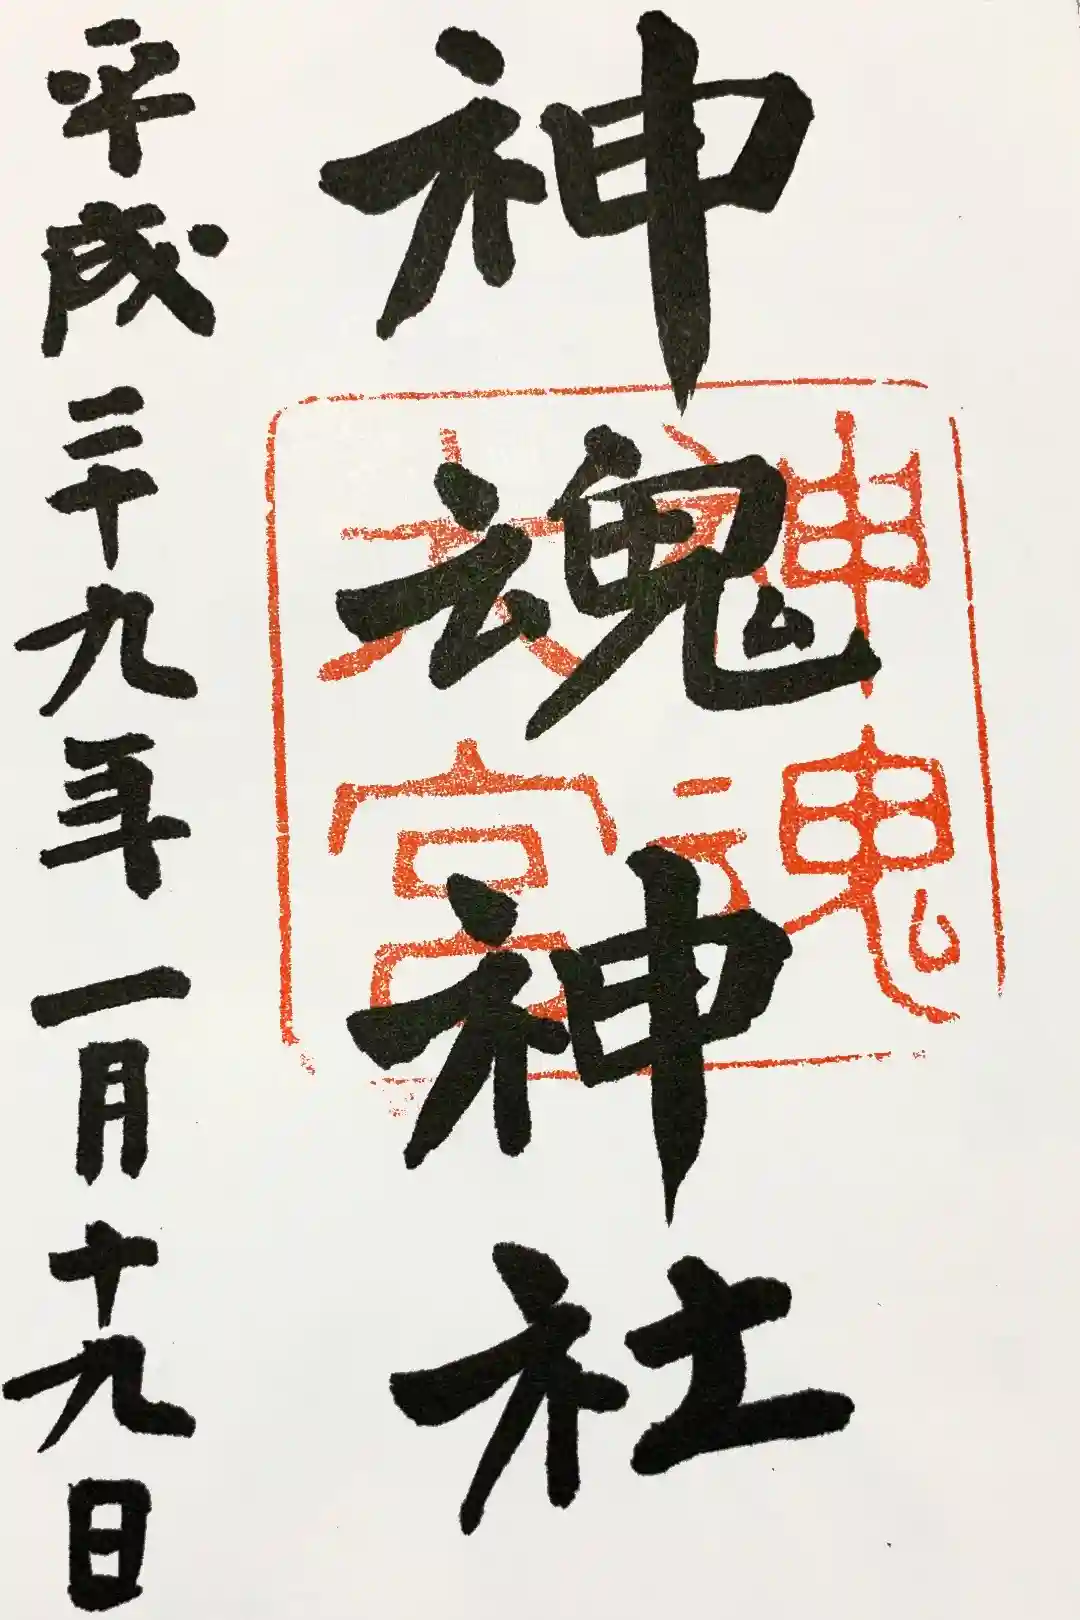 神魂神社
神魂
大宮
平成二十九年一月十九日